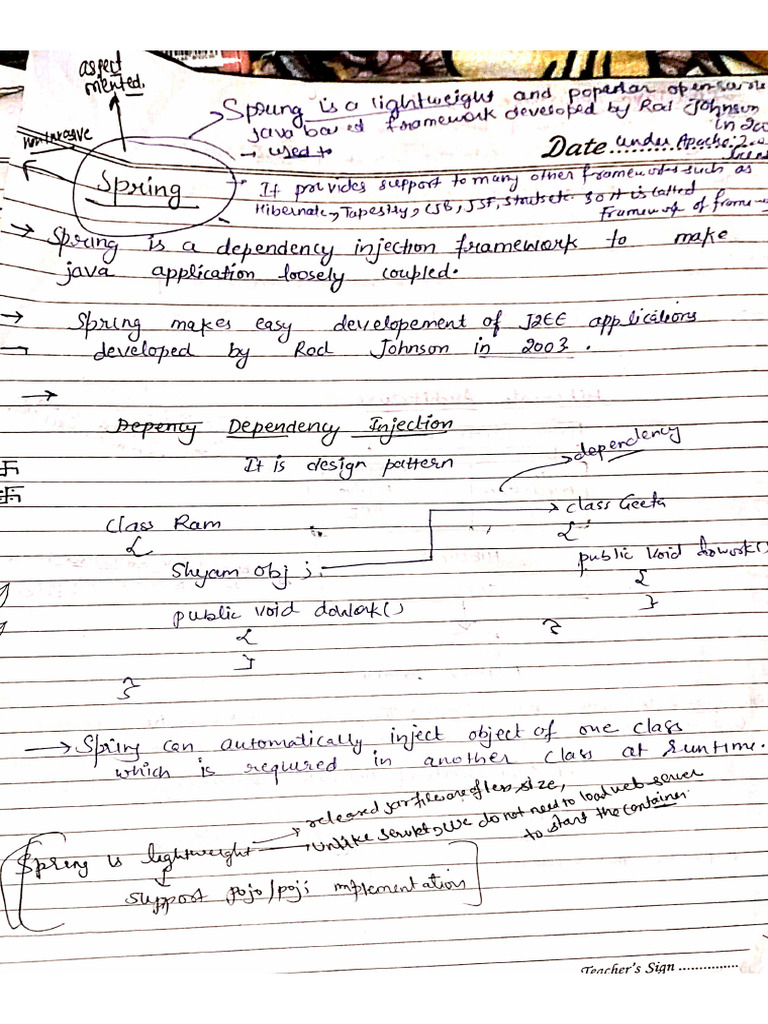 aspect
oriented.
Spring is a lightweight and popular opensource
java based framework developed by Rod Johnson
in 200
→ used to
Date.......... under Apache 2.0
Spring
It provides support to many other frameworks such as
Hibernate, Tapestry, EJB, JSF, Struts etc. So it is called
framework of frame
→ Spring is a dependency injection framework to make
java application loosely coupled.
→ Spring makes easy developement of J2EE applications
developed by Rod Johnson in 2003.
→
Depency Dependency Injection
It is design pattern
dependency
class Ram
class Geeta
{
{
Shyam obj ;
public void dowork()
{
}
public void dowork()
{
}
}
}
→ Spring can automatically inject object of one class
which is required in another class at runtime.
Spring is lightweight
→ released jar file are of less size,
→ unlike servlet, we do not need to load web server
to start the container.
support pojo/poji implementation
Teacher's Sign ...............